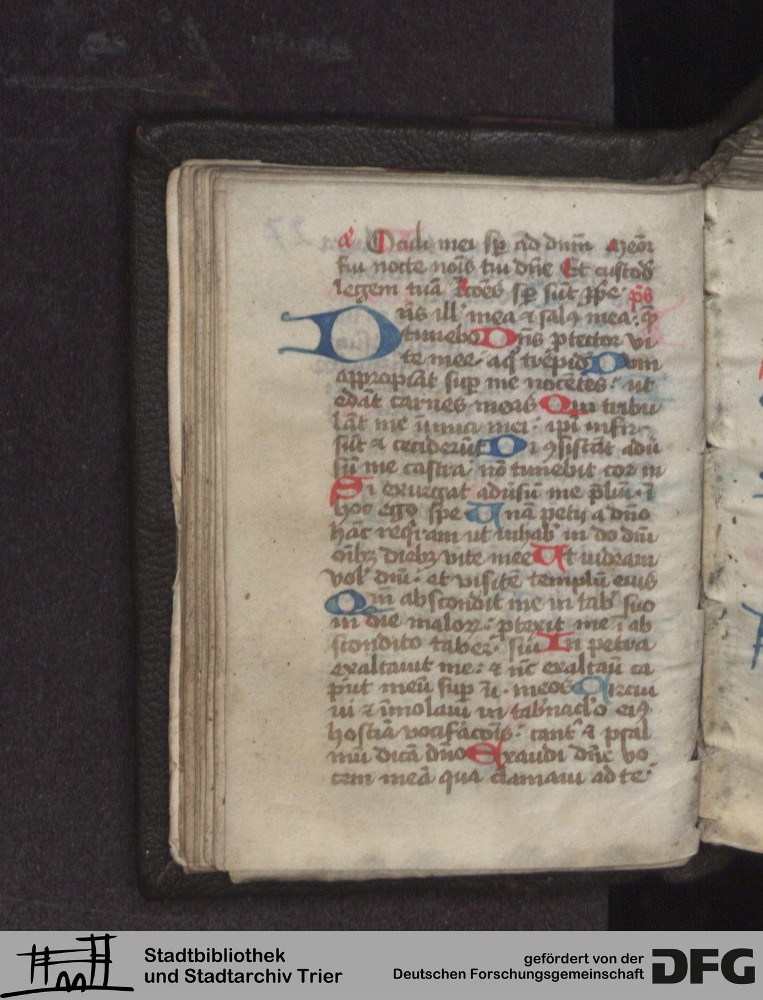 Oculi mei sp̄ ad dn̄m Meōr
fui nocte nōis tui dn̄e Et custod
legem tuā Ītoēs sp̄ sūt ip̄e p̄s
Dn̄s ill mea ⁊ salꝰ mea: q̄
timebo Dn̄s ꝓtector vi
te mee· aq̊ trēpid Dum
appropiāt suꝑ me nocētes: ut
edāt carnes meas Qui tribu
lāt me inimici mei· ip̄i infir
sūt ⁊ ceciderūt Si ꝯsistāt adū
sū me castra· nō timebit cor m
Si exurgat adūsū me p̄liū· ī
hoc ego spe Unā petii a dn̄o
hāc reqram ut inhab in do dn̄i
oībꝫ diebꝫ vite mee Ut uideam
vol dn̄i: et visitē templū eius
Qm̄ abscondit me in tab suo
in die maloꝝ: ꝓtexit me ī ab
scondito taber sui In petra
exaltauit me: ⁊ nc̄ exaltau ca
put meū suꝑ ī meos Circui
ui ⁊ īmolaui in tabnaclo eiꝰ
hostiā vociferacōis: cant ⁊ psal
mū dicā dn̄o Exaudi dn̄e vo
cem meā qua clamaui ad te
Stadtbibliothek
und Stadtarchiv Trier
gefördert von der
Deutschen Forschungsgemeinschaft
DFG